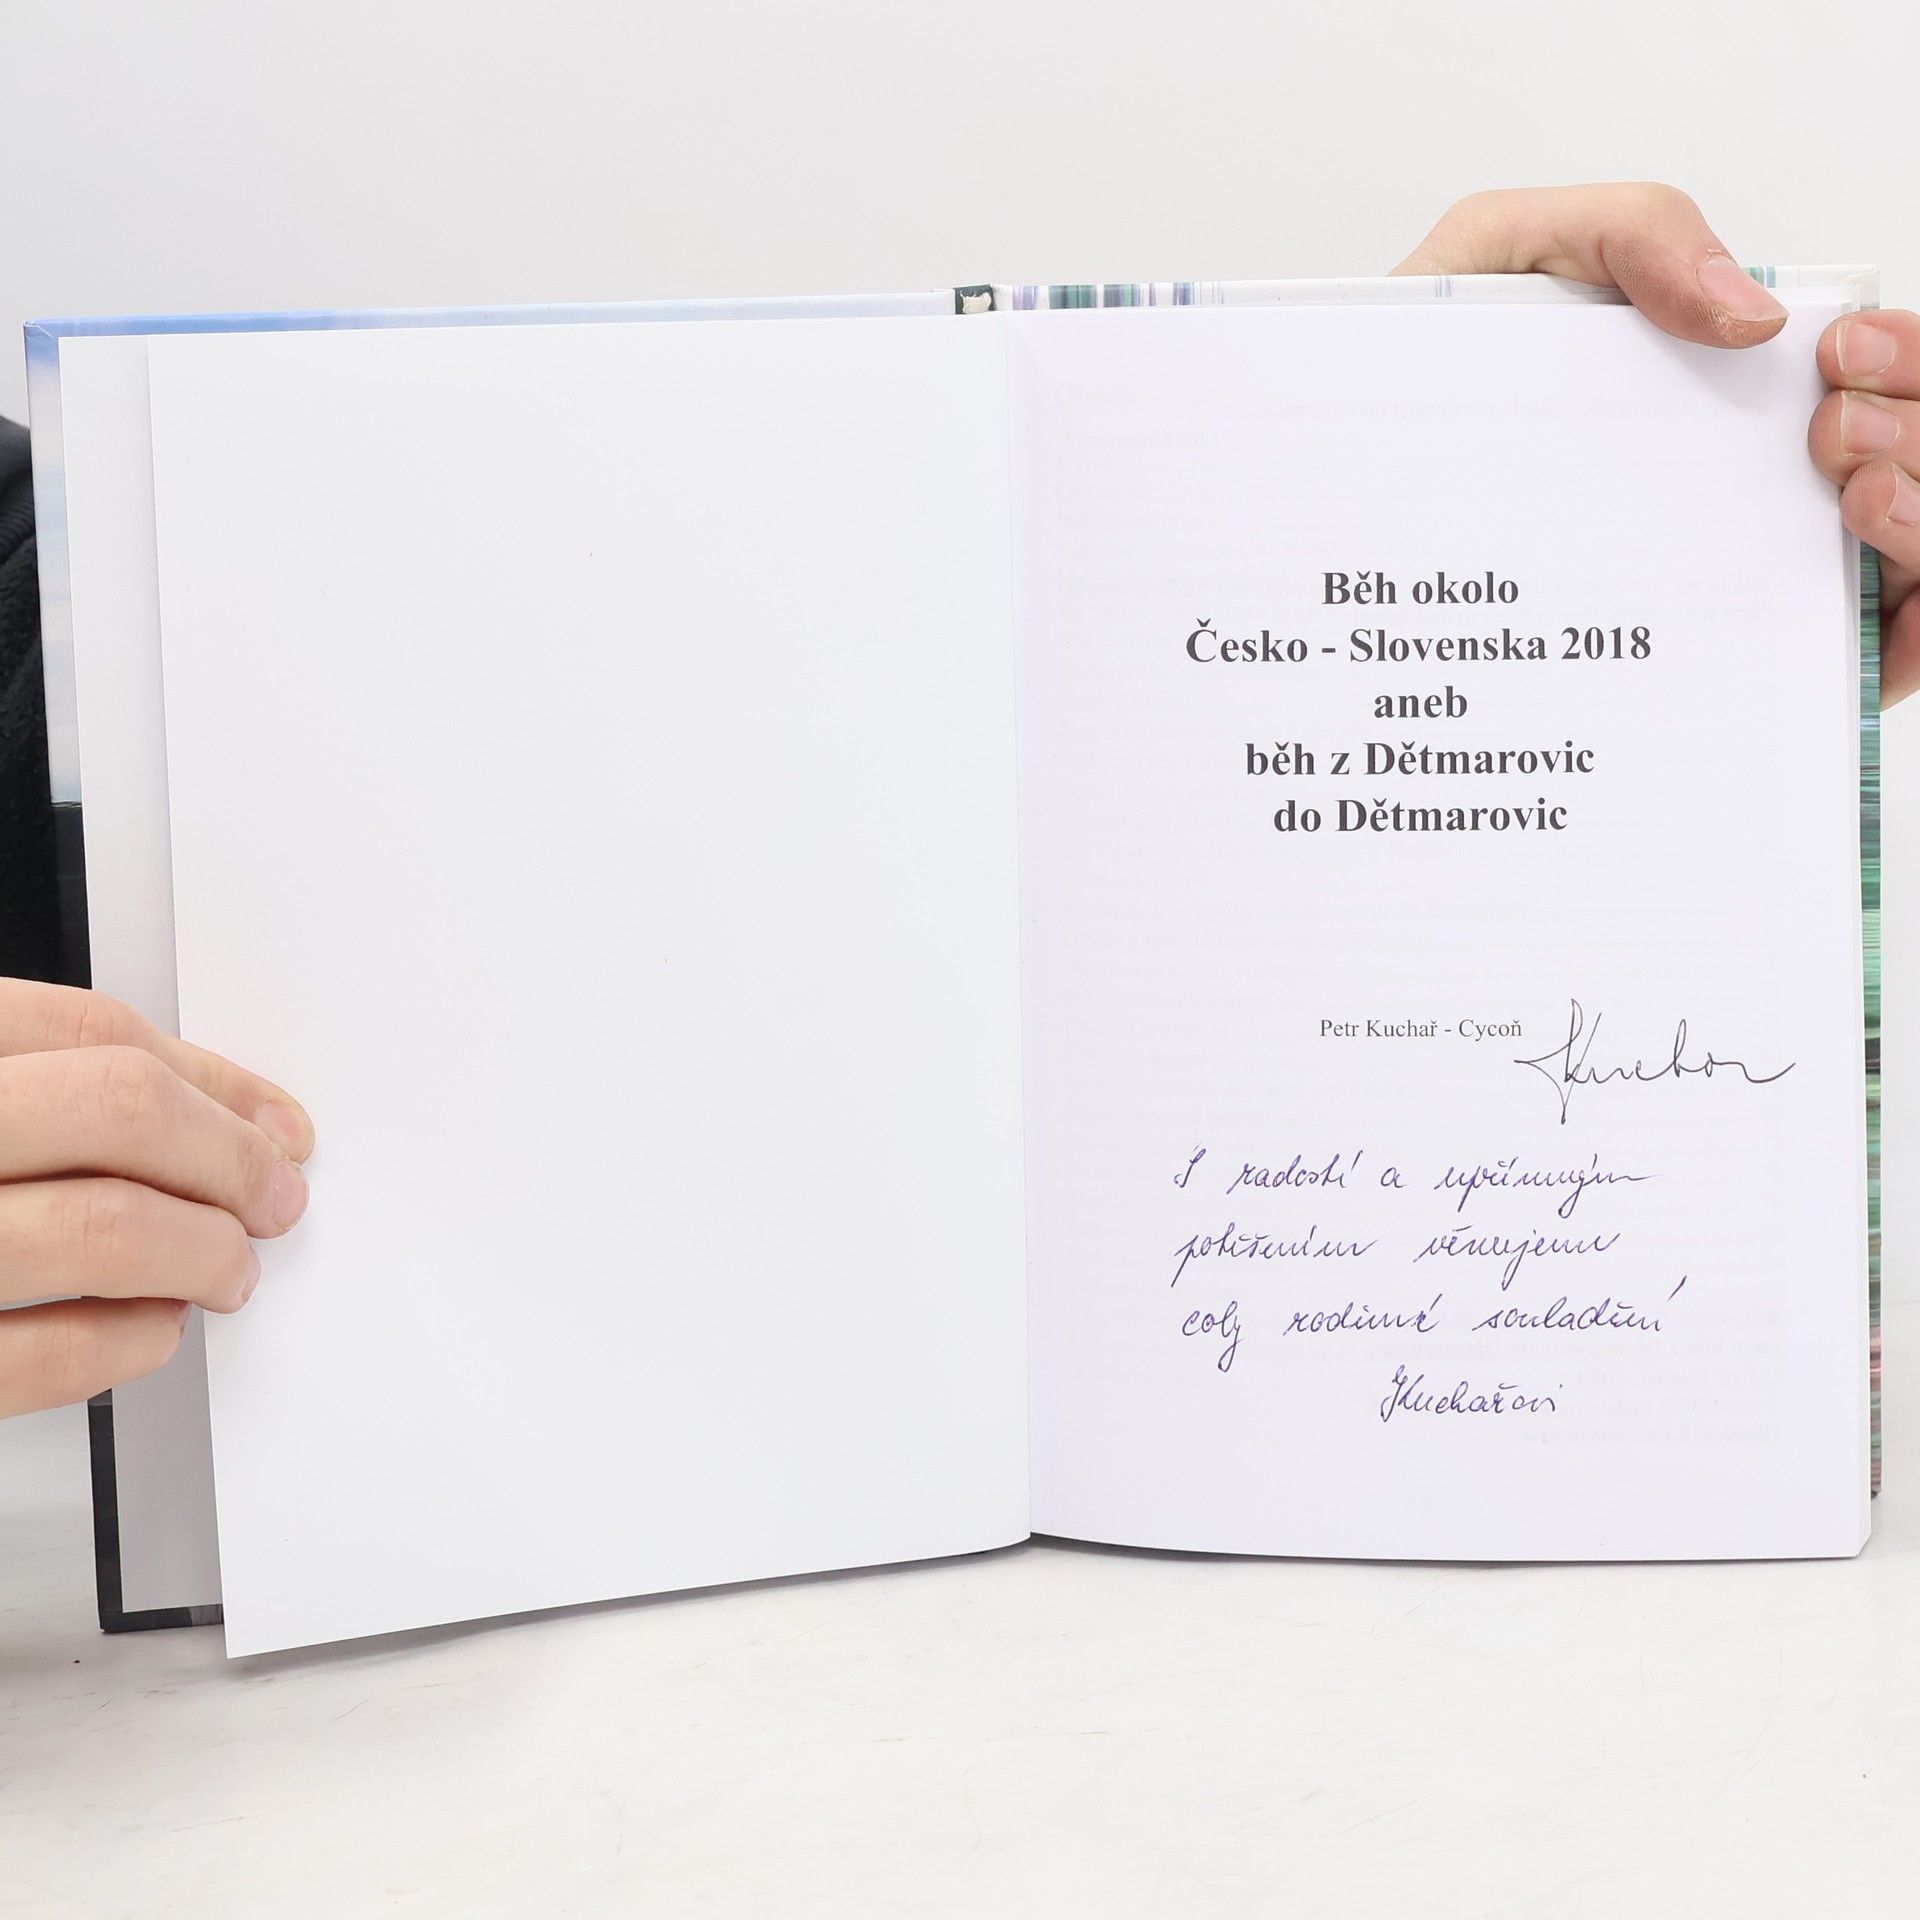 Běh okolo
Česko - Slovenska 2018
aneb
běh z Dětmarovic
do Dětmarovic
Petr Kuchař - Cycoň
Kuchař
S radostí a upřímným
potěšením věnujeme
coby rodinné souladění
Kuchařovi